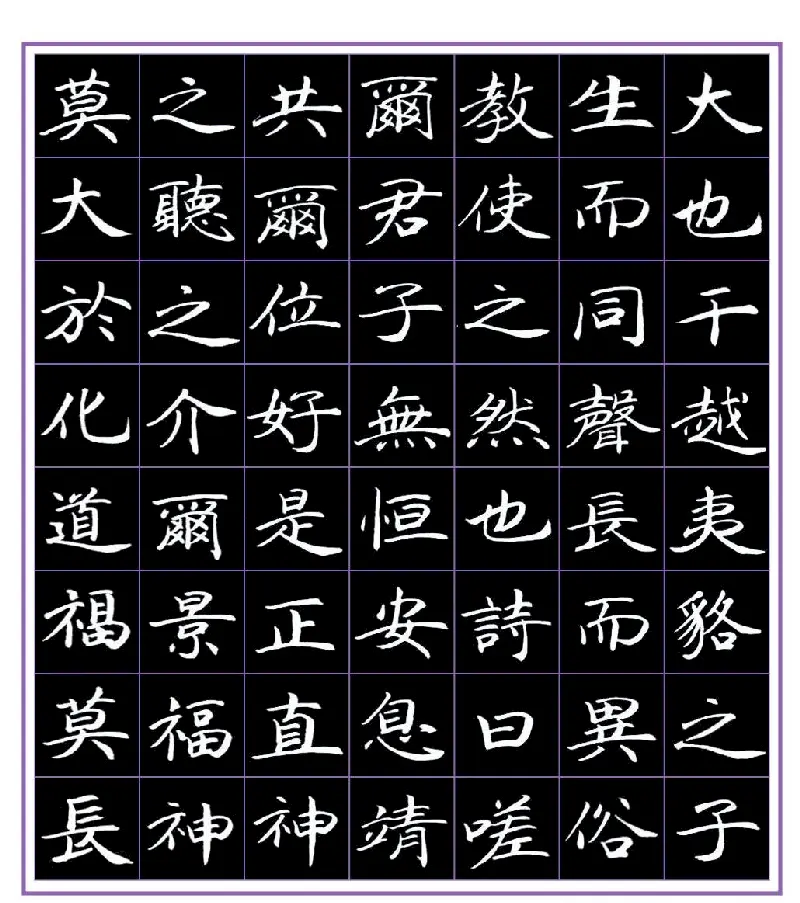 大也干越夷貉之子
生而同聲長而異俗
教使之然也詩曰嗟
爾君子無恒安息靖
共爾位好是正直神
之聽之介爾景福神
莫大於化道福莫長